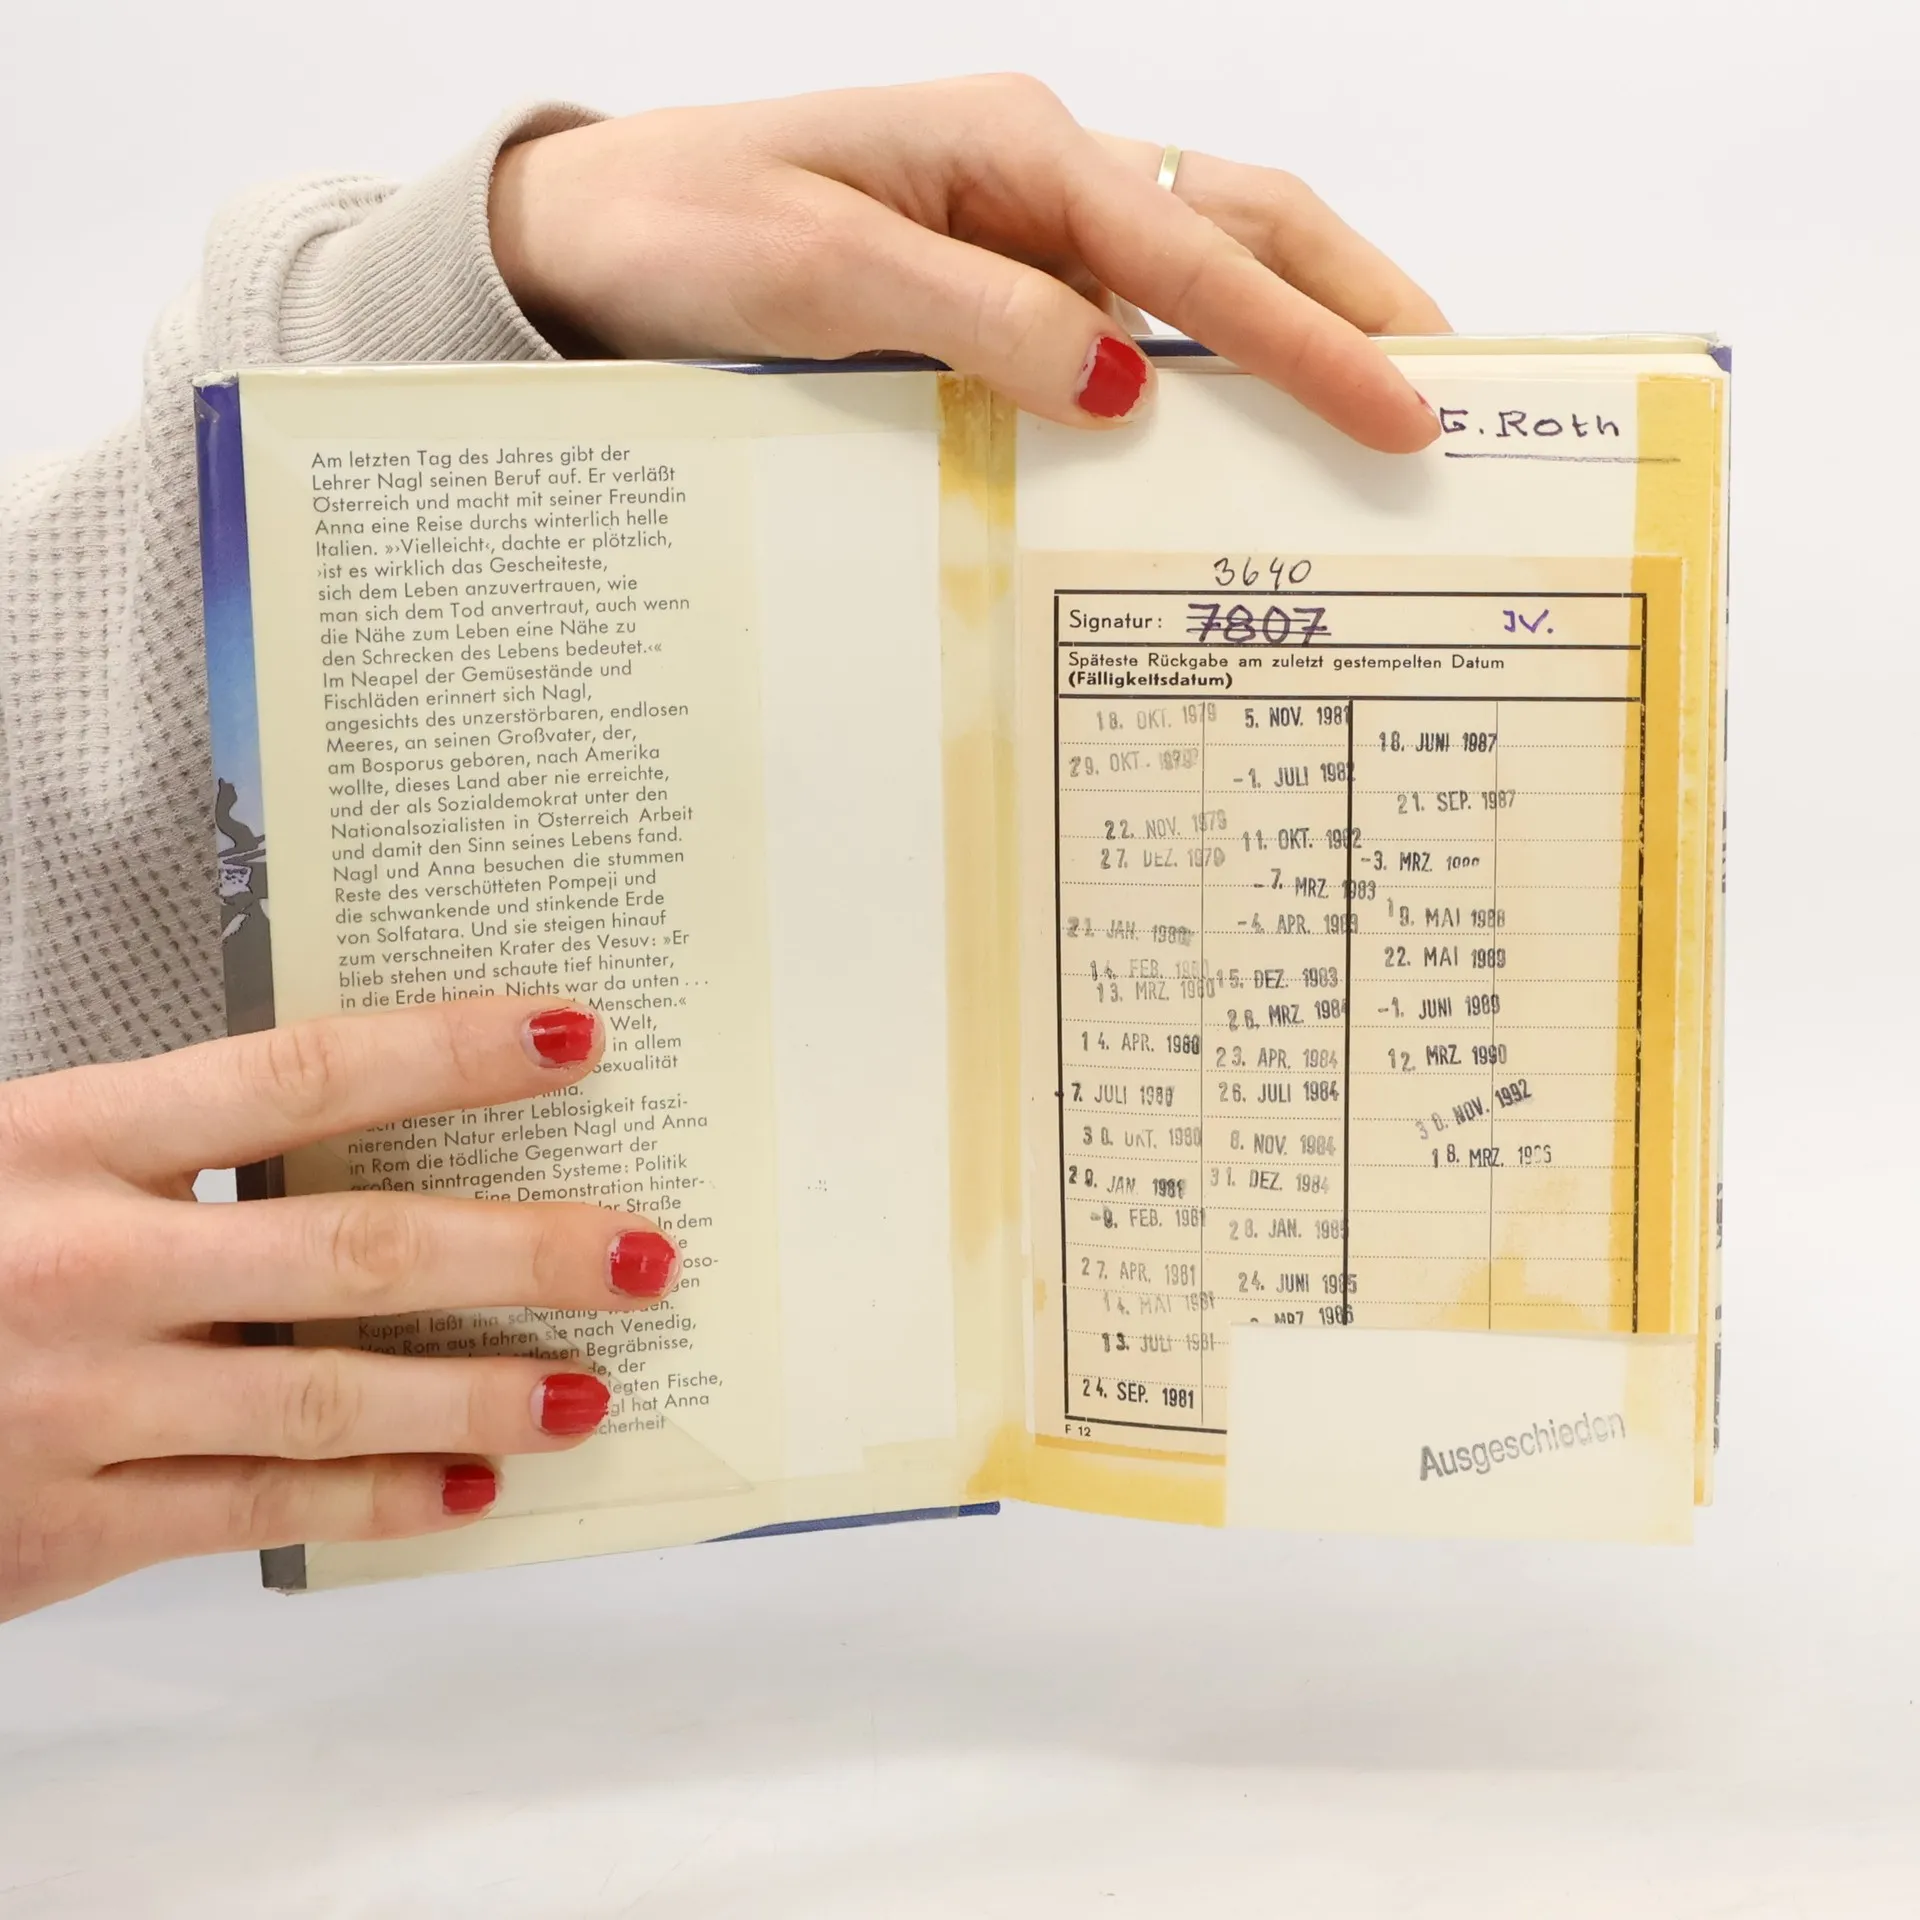 Am letzten Tag des Jahres gibt der
Lehrer Nagl seinen Beruf auf. Er verläßt
Österreich und macht mit seiner Freundin
Anna eine Reise durchs winterlich helle
Italien. »›Vielleicht‹, dachte er plötzlich,
›ist es wirklich das Gescheiteste,
sich dem Leben anzuvertrauen, wie
man sich dem Tod anvertraut, auch wenn
die Nähe zum Leben eine Nähe zu
den Schrecken des Lebens bedeutet.‹«
Im Neapel der Gemüsestände und
Fischläden erinnert sich Nagl,
angesichts des unzerstörbaren, endlosen
Meeres, an seinen Großvater, der,
am Bosporus geboren, nach Amerika
wollte, dieses Land aber nie erreichte,
und der als Sozialdemokrat unter den
Nationalsozialisten in Österreich Arbeit
und damit den Sinn seines Lebens fand.
Nagl und Anna besuchen die stummen
Reste des verschütteten Pompeji und
die schwankende und stinkende Erde
von Solfatara. Und sie steigen hinauf
zum verschneiten Krater des Vesuv: »Er
blieb stehen und schaute tief hinunter,
in die Erde hinein. Nichts war da unten . . .
Menschen.«
Welt,
in allem
Sexualität
dieser in ihrer Leblosigkeit faszi-
nierenden Natur erleben Nagl und Anna
in Rom die tödliche Gegenwart der
großen sinntragenden Systeme: Politik
Eine Demonstration hinter-
der Straße
In dem
Kuppel läßt ihn schwindlig werden.
Von Rom aus fahren sie nach Venedig,
Begräbnisse,
der
Fische,
hat Anna
G. Roth
3640
Signatur: 7807 IV.
Späteste Rückgabe am zuletzt gestempelten Datum
(Fälligkeitsdatum)
18. OKT. 1979
29. OKT. 1979
22. NOV. 1979
27. DEZ. 1979
21. JAN. 1980
14. FEB. 1980
13. MRZ. 1980
14. APR. 1980
7. JULI 1980
30. OKT. 1980
20. JAN. 1981
-9. FEB. 1981
27. APR. 1981
14. MAI 1981
13. JULI 1981
24. SEP. 1981
5. NOV. 1981
-1. JULI 1982
11. OKT. 1982
-7. MRZ. 1983
APR. 1983
15. DEZ. 1983
MRZ. 1984
23. APR. 1984
26. JULI 1984
8. NOV. 1984
31. DEZ. 1984
28. JAN. 1985
24. JUNI 1985
1986
18. JUNI 1987
21. SEP. 1987
-3. MRZ.
19. MAI 1988
22. MAI 1989
-1. JUNI 1989
12. MRZ. 1990
30. NOV. 1992
18. MRZ.
F 12
Ausgeschieden